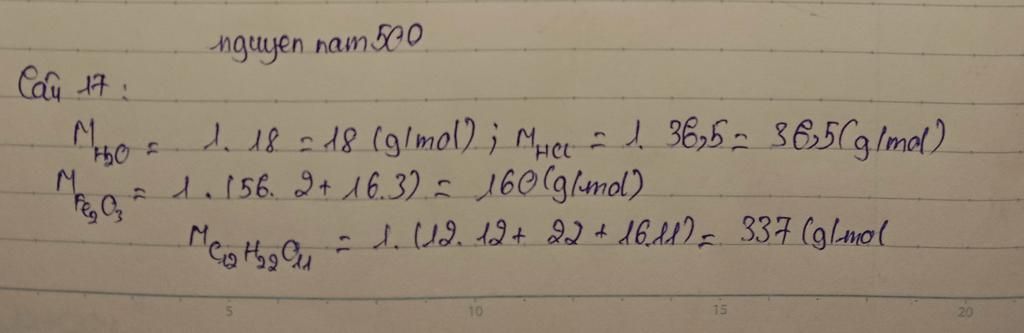 nguyen nam 500
Câu 17 :
M H₂O = 1. 18 = 18 (g/mol) ; M HCl = 1. 36,5 = 36,5 (g/mol)
M Fe₂O₃ = 1. (56. 2 + 16.3) = 160 (g/mol)
M C₁₂H₂₂O₁₁ = 1. (12. 12 + 22 + 16.11) = 337 (g/mol
5 10 15 20